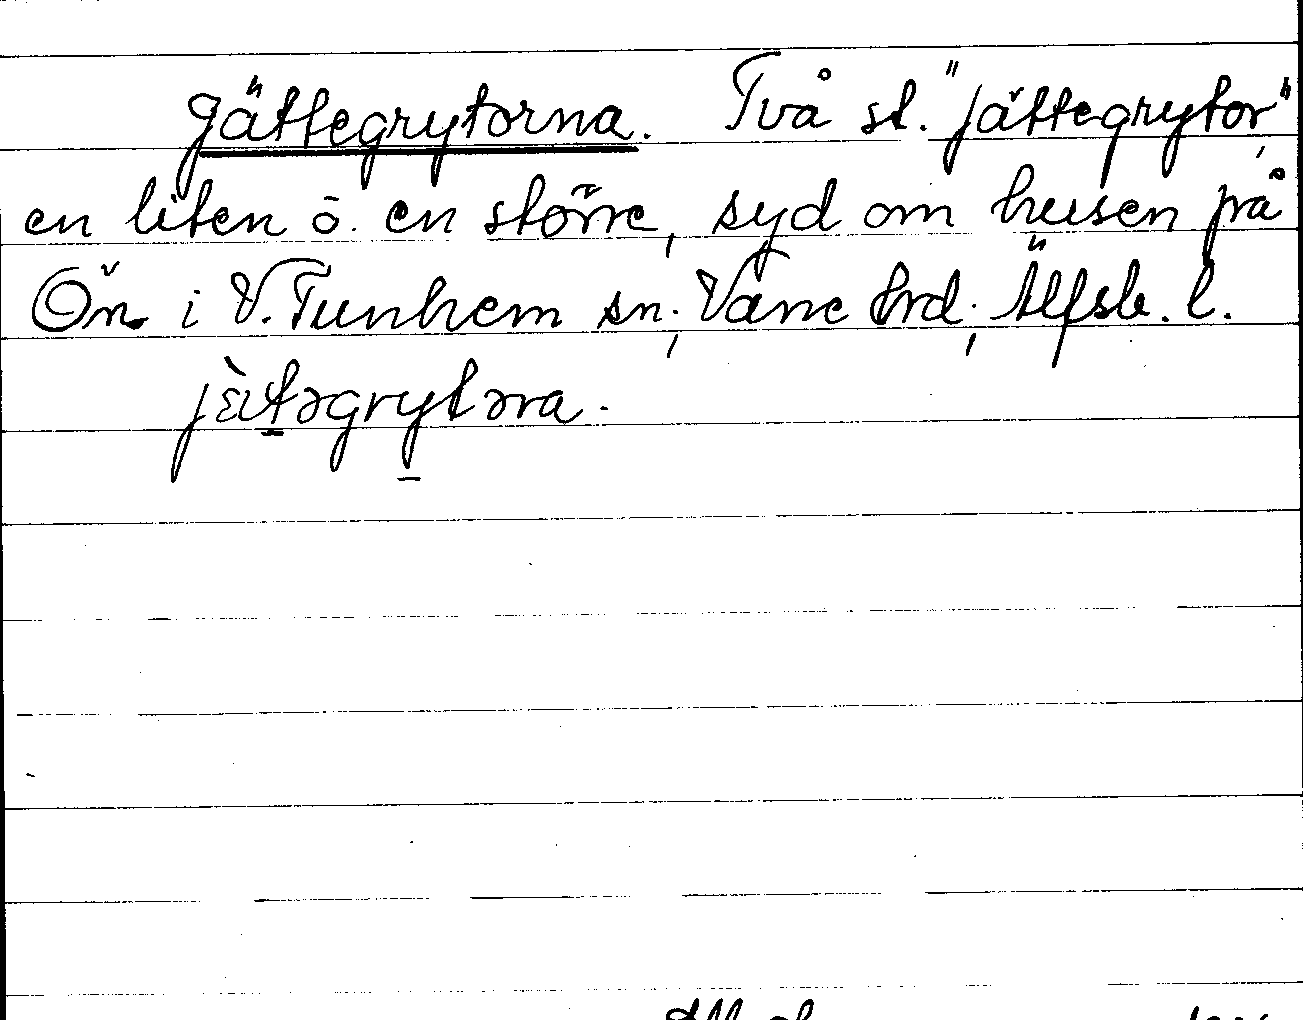 Jättegrytorna. Två st. "jättegrytor",
en liten o. en större, syd om husen på
Ön i V. Tunhem sn, Väne hrd, Älfsb. l.
jɛ̀təgrytəra.